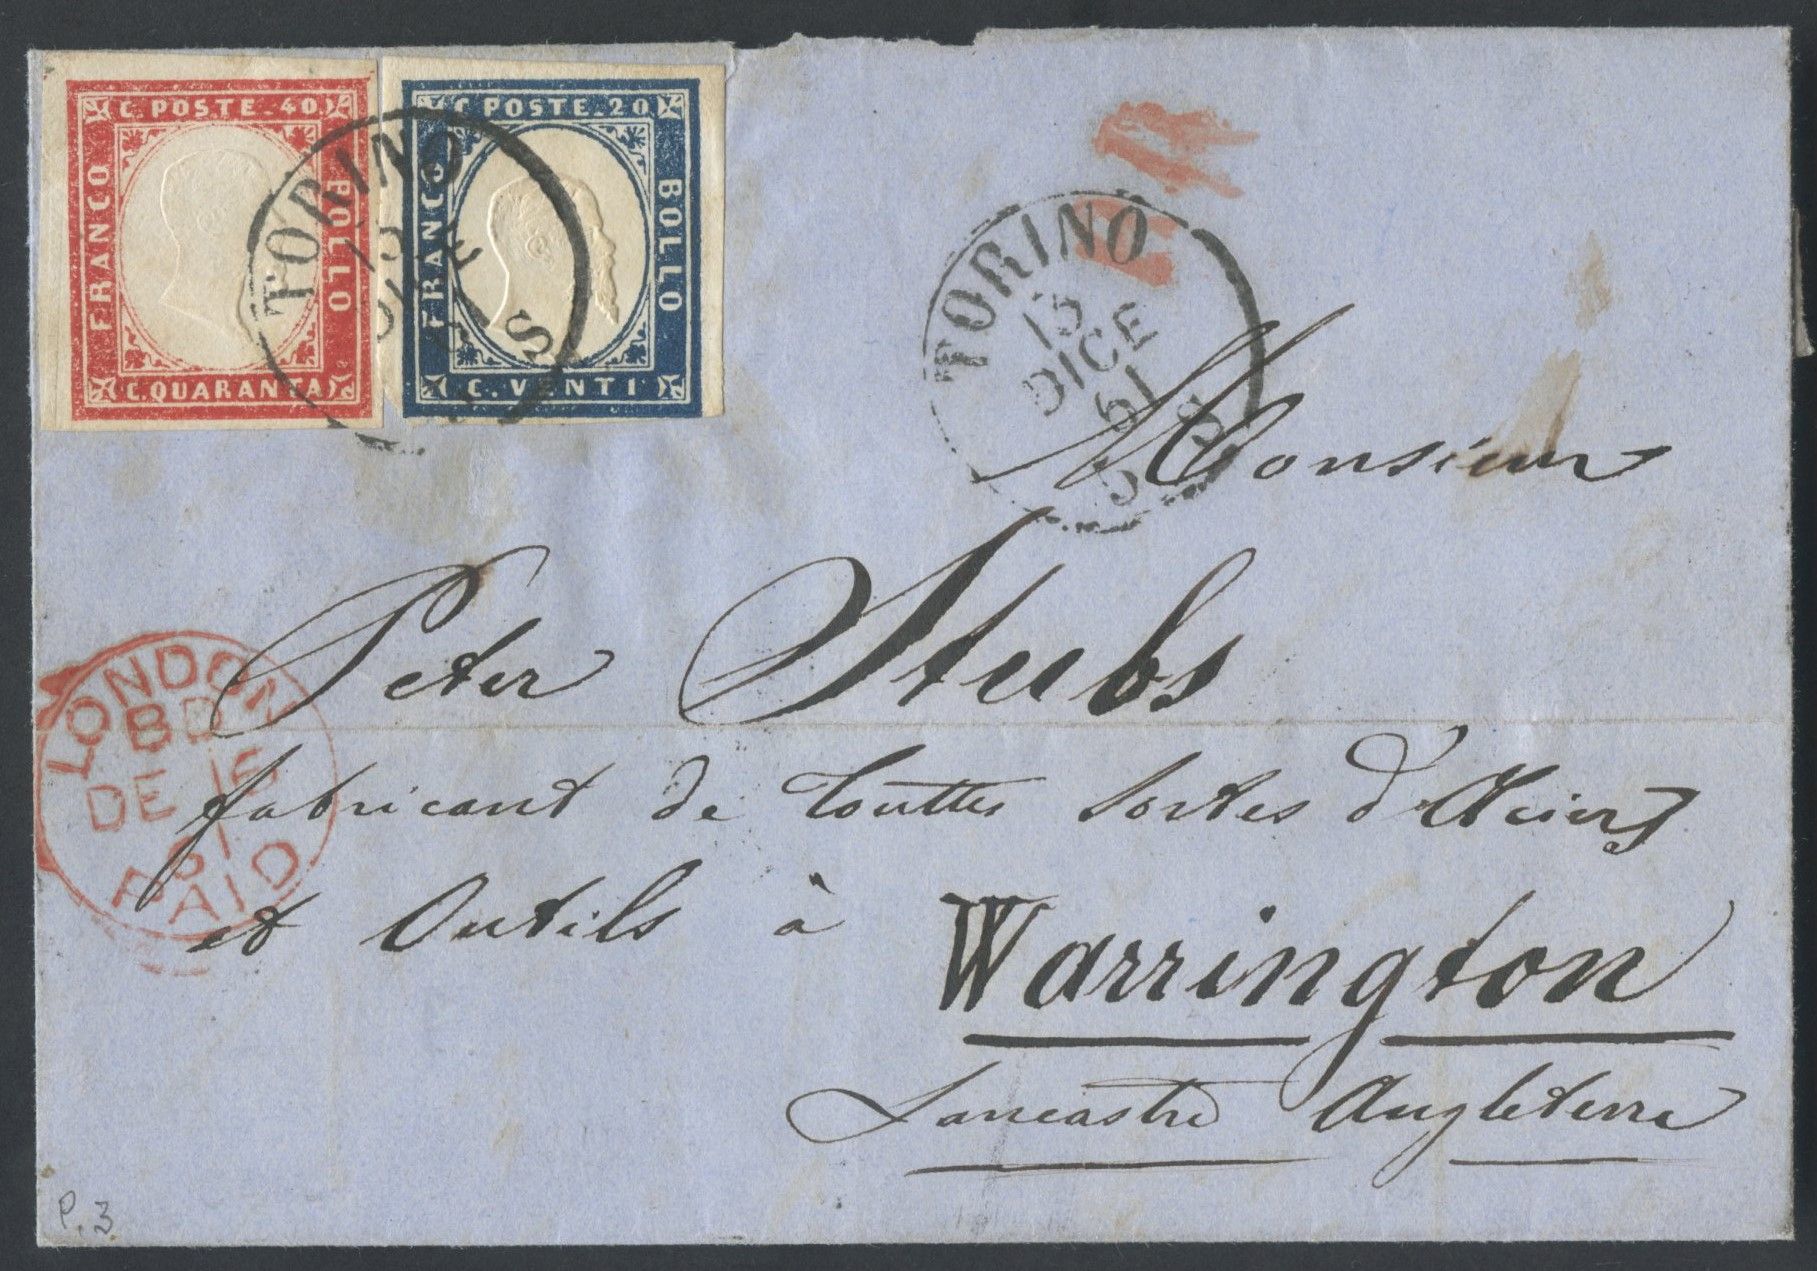 C. POSTE. 40
FRANCO
BOLLO
C. QUARANTA
C. POSTE. 20
FRANCO
BOLLO
C. VENTI
TORINO
13
S
TORINO
13
DICE
61
5 S
Monsieur
Peter Stubs
fabricant de touttes sortes d'Aciers
et Outils à
Warrington
Lancastre Angleterre
LONDON
DE 16
61
PAID
P. 3